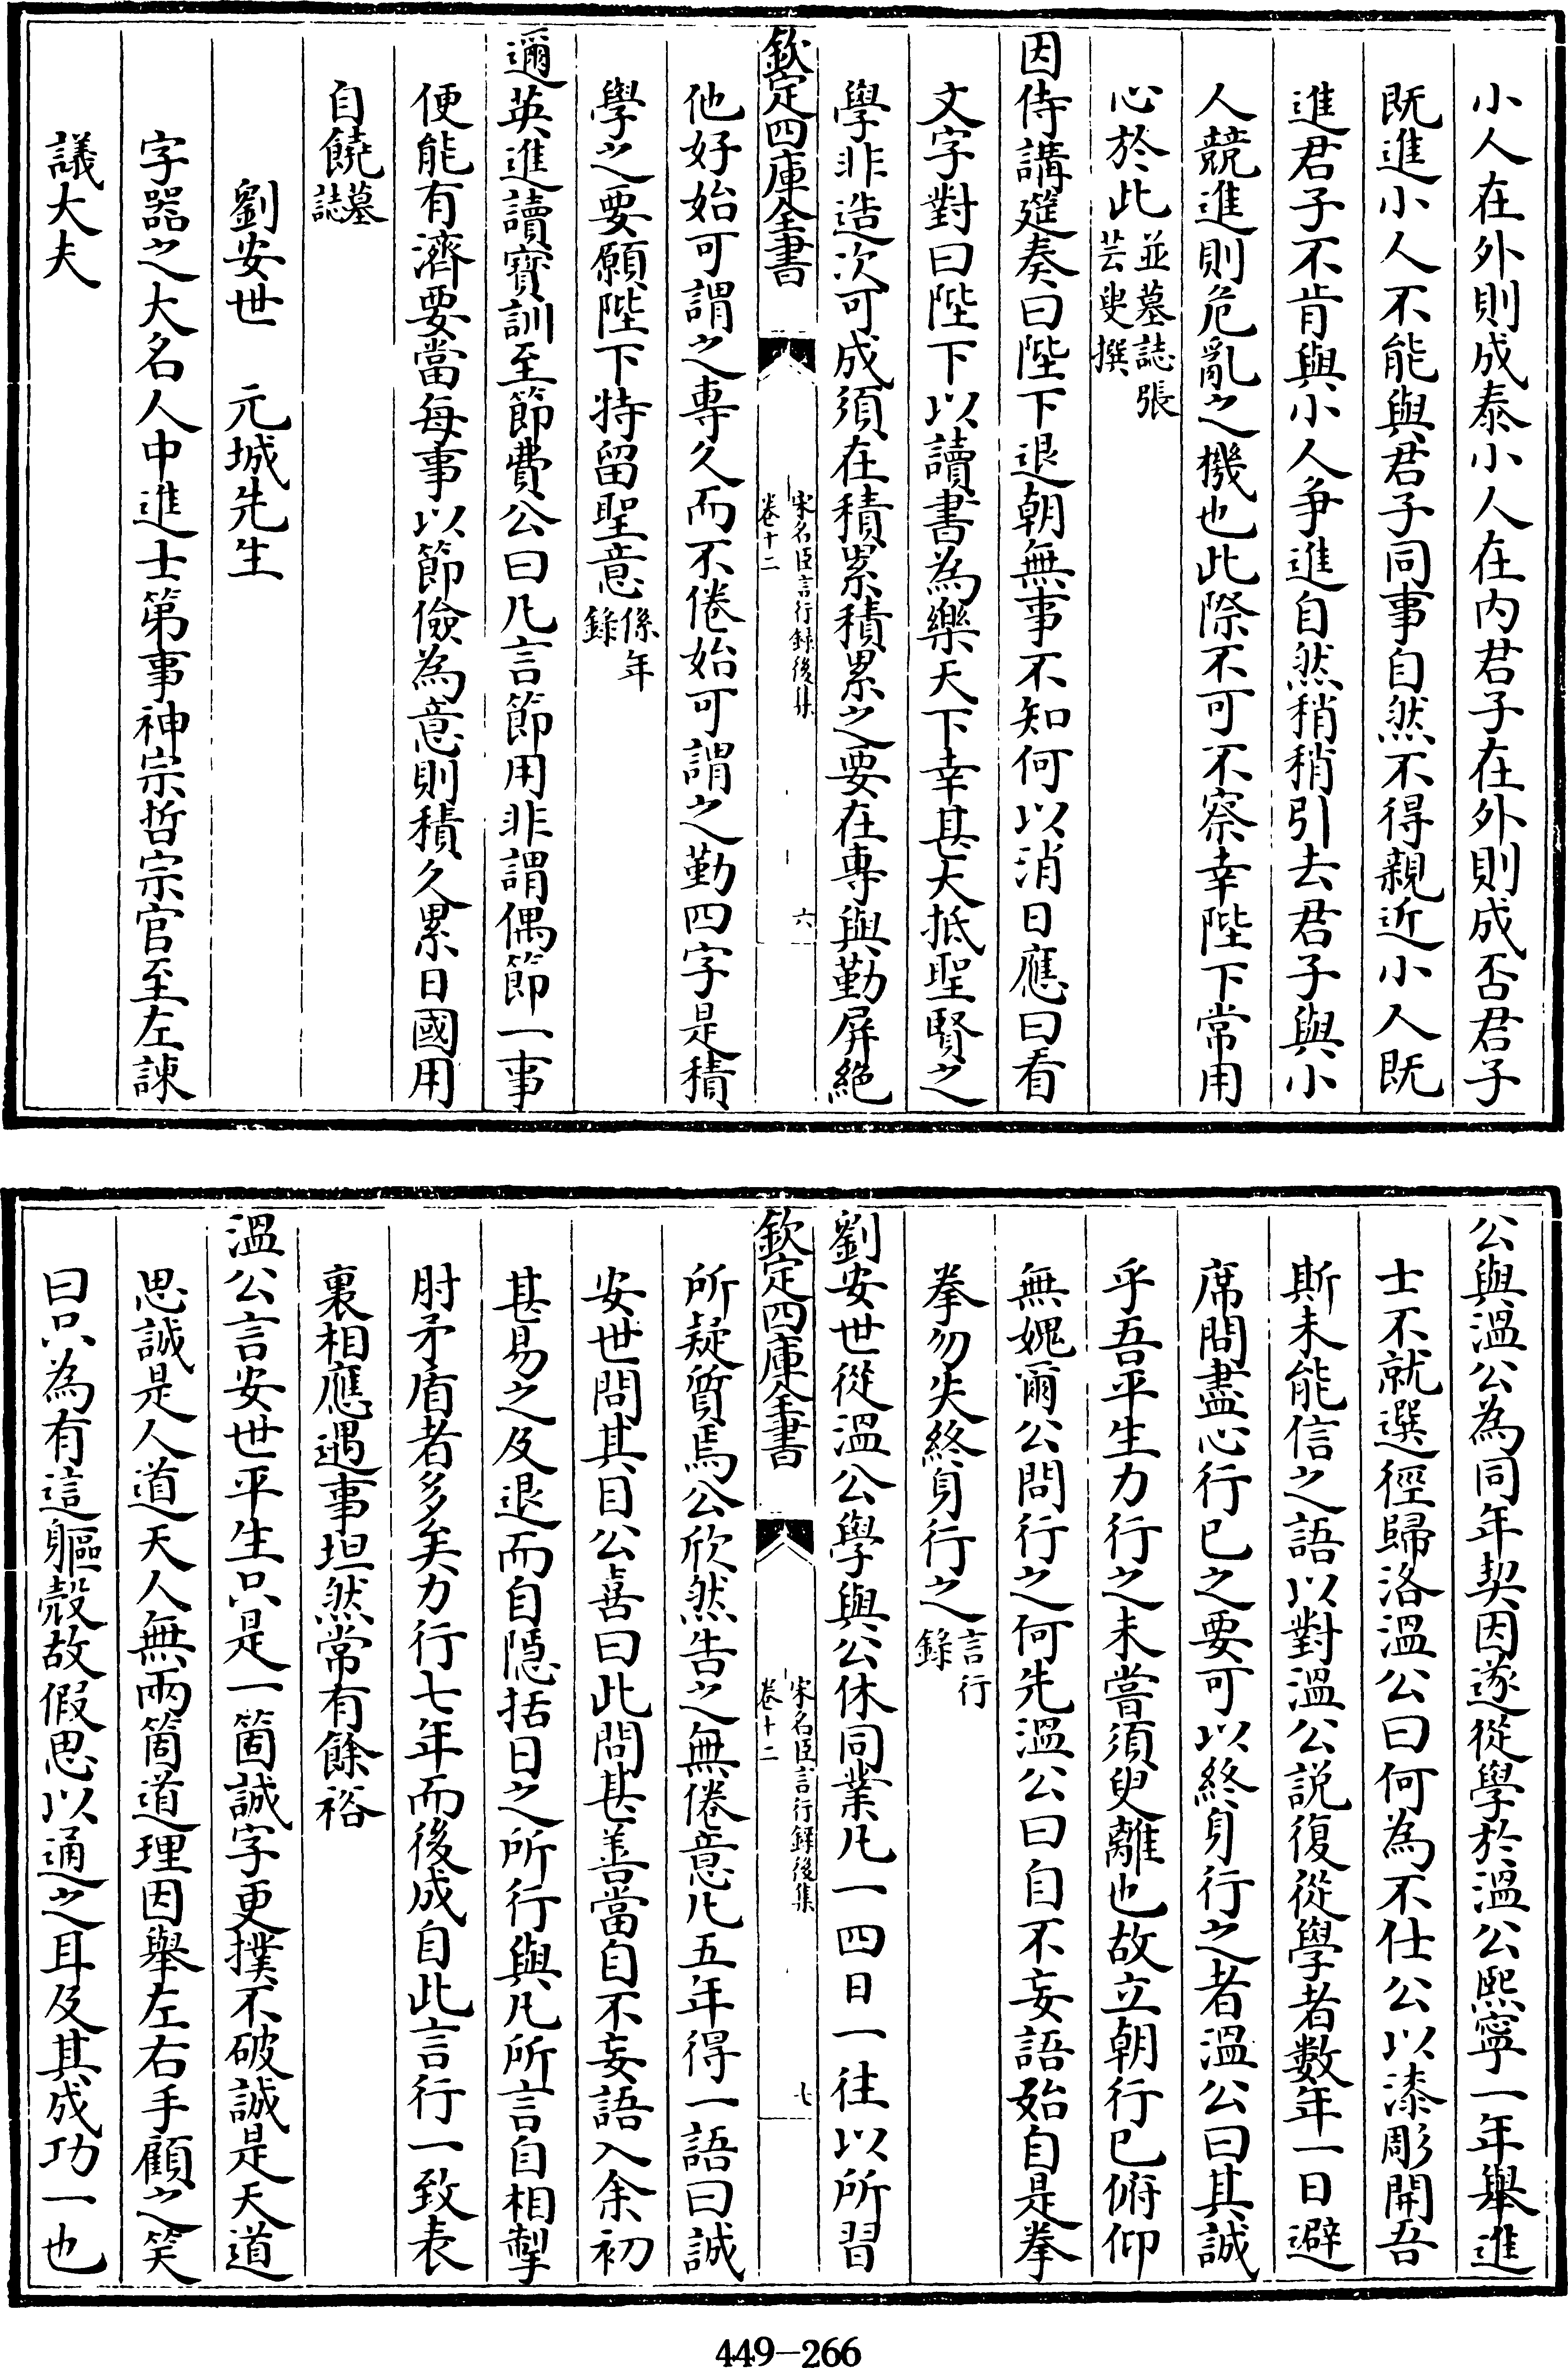 小人在外則成泰小人在內君子在外則成否君子
既進小人不能與君子同事自然不得親近小人既
進君子不肯與小人爭進自然稍稍引去君子與小
人競進則危亂之機也此際不可不察幸陛下常用
心於此並墓誌張芸叟撰
因侍講筵奏曰陛下退朝無事不知何以消日應曰看
文字對曰陛下以讀書為樂天下幸甚大抵聖賢之
學非造次可成須在積累積累之要在專與勤屏絶
欽定四庫全書
宋名臣言行録後集
卷十二
六
他好始可謂之專久而不倦始可謂之勤四字是積
學之要願陛下特留聖意係年錄
邇英進讀寳訓至節費公曰凡言節用非謂偶節一事
便能有濟要當每事以節儉為意則積久累日國用
自饒墓誌
劉安世 元城先生
字器之大名人中進士第事神宗哲宗官至左諫
議大夫
公與溫公為同年契因遂從學於溫公熙寧一年舉進
士不就選徑歸洛溫公曰何為不仕公以漆彫開吾
斯未能信之語以對溫公說復從學者數年一日避
席問盡心行已之要可以終身行之者溫公曰其誠
乎吾平生力行之未嘗須臾離也故立朝行已俯仰
無媿爾公問行之何先溫公曰自不妄語始自是拳
拳勿失終身行之言行錄
劉安世從溫公學與公休同業凡一四日一往以所習
欽定四庫全書
宋名臣言行録後集
卷十二
七
所疑質焉公欣然告之無倦意凡五年得一語曰誠
安世問其目公喜曰此問甚善當自不妄語入余初
甚易之及退而自隱括日之所行與凡所言自相掣
肘矛盾者多矣力行七年而後成自此言行一致表
裏相應遇事坦然常有餘裕
溫公言安世平生只是一箇誠字更撲不破誠是天道
思誠是人道天人無兩箇道理因舉左右手顧之笑
曰只為有這軀殼故假思以通之耳及其成功一也
449-266